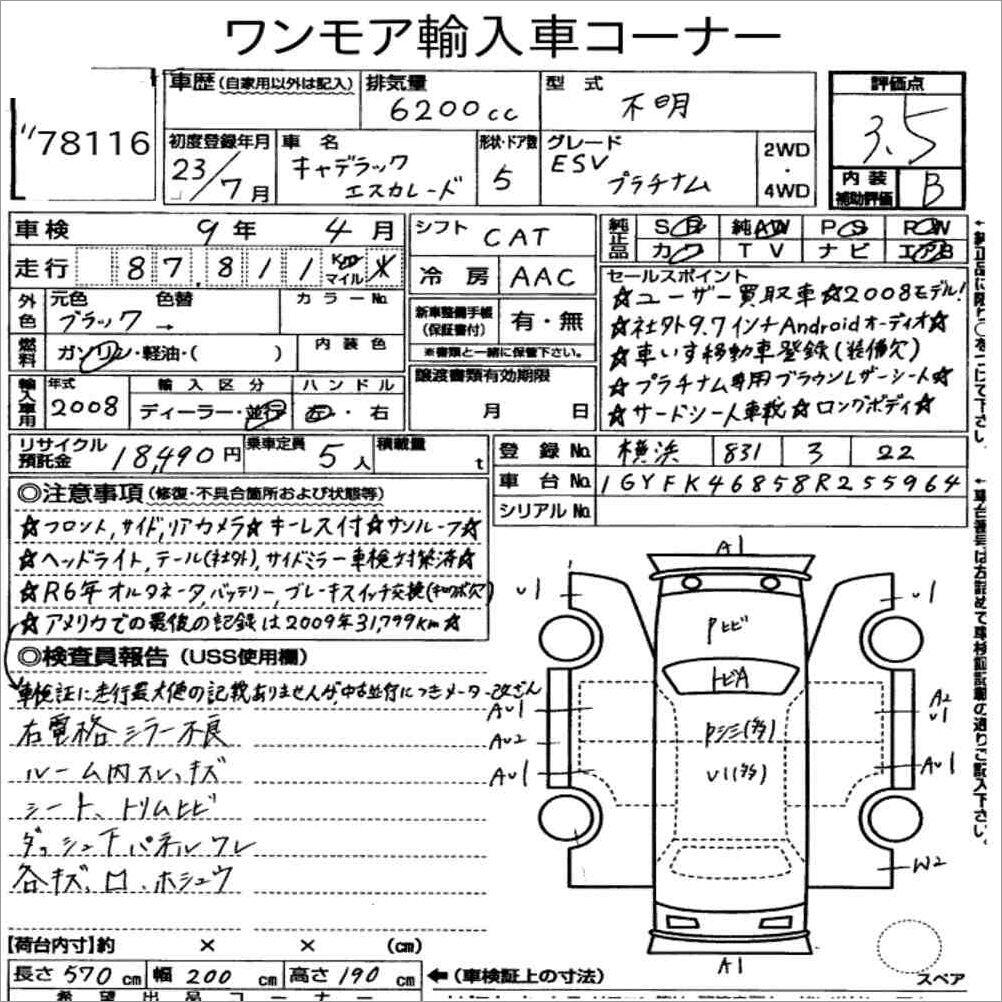 ワンモア輸入車コーナー
78116
車歴 (自家用以外は記入)
排気量 6200cc
型式 不明
評価点 3.5
初度登録年月 23/7月
車名 キャデラック エスカレード
形状・ドア数 5
グレード ESV プラチナム
2WD ・ 4WD
内装補助評価 B
車検 9年 4月
走行 87,811 Km マイル
シフト CAT
冷房 AAC
純正品 SR 純AW PS PW
カワ TV ナビ エアB
外色 元色 色替 カラーNo
ブラック →
燃料 ガソリン・軽油・( ) 内装色
新車整備手帳(保証書付) 有・無
※書類と一緒に保管下さい。
セールスポイント
☆ユーザー買取車☆2008モデル!
☆社外9.7インチAndroidオーディオ☆
☆車いす移動車登録(装備欠)
☆プラチナム専用ブラウンレザーシート☆
☆サードシート車載☆ロングボディ☆
輸入車用 年式 2008
輸入区分 ディーラー・並行
ハンドル 左・右
譲渡書類有効期限 月 日
リサイクル預託金 18,490円
乗車定員 5人
積載量 t
登録No. 横浜 831 ろ 22
車台No. 1GYFK46858R255964
シリアルNo.
◎注意事項(修復・不具合箇所および状態等)
☆フロント,サイド,リアカメラ☆キーレス付☆サンルーフ☆
☆ヘッドライト,テール(社外),サイドミラー車検対策済☆
☆R6年オルタネータ,バッテリー,ブレーキスイッチ交換(キロク欠)
☆アメリカでの最後の記録は2009年31,799km☆
◎検査員報告 (USS使用欄)
車検証に走行最大値の記載ありませんが,中古並行につきメーター改ざん
右電格ミラー不良
ルーム内スレ、キズ
シート、トリムヒビ
ダッシュ下パネルワレ
各キズ、凹、ホシュウ
A1
U1
U1
Pヒビ
トビA
AU1
AU2
AU1
A2
U1
AU1
Pシミ(多)
U1(多)
W2
A1
スペア
【荷台内寸】約 × × (cm)
長さ 570 cm 幅 200 cm 高さ 190 cm
←(車検証上の寸法)
希望出品コーナー